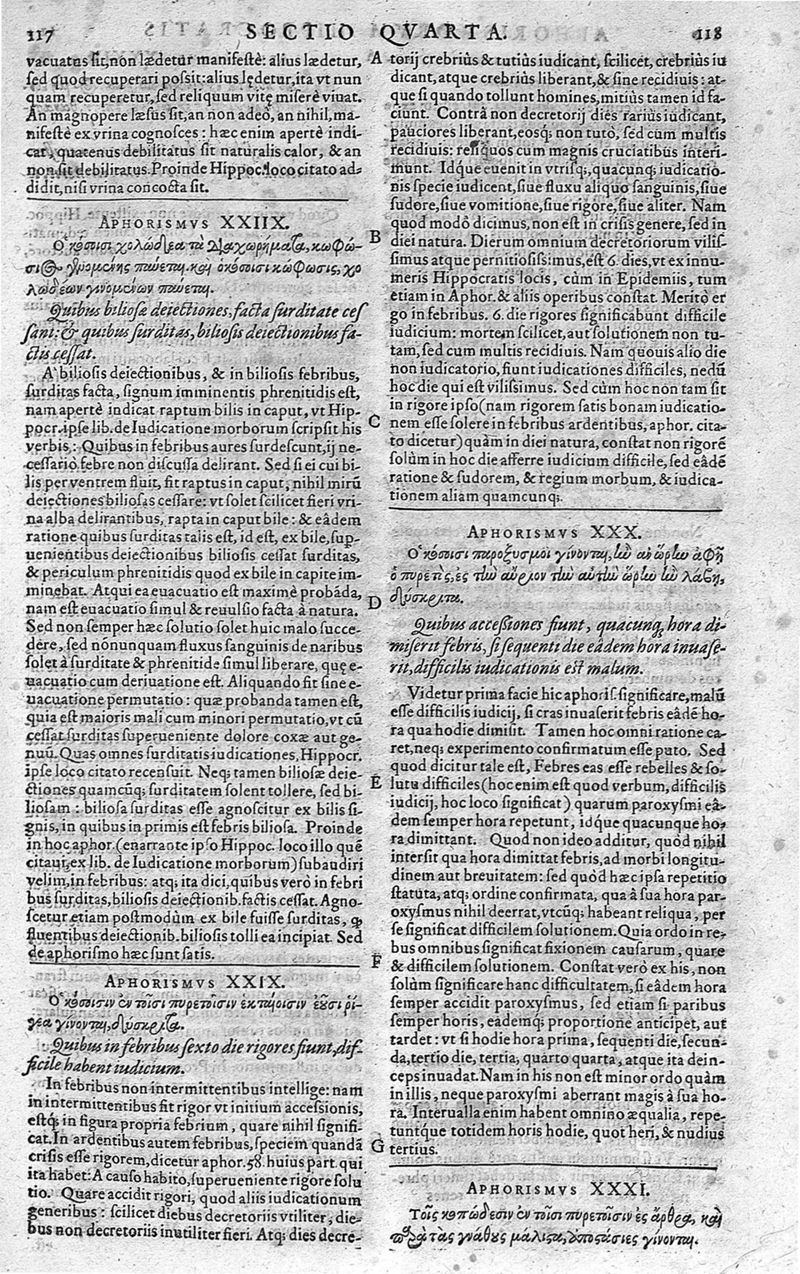 117 SECTIO QVARTA. 118
vacuatus sit, non lædetur manifestè: alius lædetur,
sed quod recuperari possit: alius lędetur, ita vt nun
quam recuperetur, sed reliquum vitę miserè viuat.
An magnopere læsus sit, an non adeò, an nihil, ma-
nifestè ex vrina cognosces: hæc enim apertè indi-
cat, quatenus debilitatus sit naturalis calor, & an
non sit debilitatus. Proinde Hippoc. loco citato ad-
didit, nisi vrina concocta sit.
APHORISMVS XXIIX.
Ὁκόσοισι χολώδεα τὰ διαχωρήματα, κωφώ-
σιος γινομένης παύεται. καὶ ὁκόσοισι κώφωσις, χο
λωδέων γινομένων παύεται.
Quibus biliosæ deiectiones, facta surditate ces
sant: & quibus surditas, biliosis deiectionibus fa-
ctis cessat.
A biliosis deiectionibus, & in biliosis febribus,
surditas facta, signum imminentis phrenitidis est,
nam apertè indicat raptum bilis in caput, vt Hip-
pocr. ipse lib. de Iudicatione morborum scripsit his
verbis: Quibus in febribus aures surdescunt, ij ne-
cessariò febre non discussa delirant. Sed si ei cui bi-
lis per ventrem fluit, fit raptus in caput, nihil mirũ
deiectiones biliosas cessare: vt solet scilicet fieri vri-
na alba delirantibus, rapta in caput bile: & eâdem
ratione quibus surditas talis est, id est, ex bile, sup-
uenientibus deiectionibus biliosis cessat surditas,
& periculum phrenitidis quod ex bile in capite im-
minebat. Atqui ea euacuatio est maximè probãda,
nam est euacuatio simul & reuulsio facta à natura.
Sed non semper hæc solutio solet huic malo succe-
dere, sed nõnunquam fluxus sanguinis de naribus
solet à surditate & phrenitide simul liberare, quę e-
uacuatio cum deriuatione est. Aliquando fit sine e-
uacuatione permutatio: quæ probanda tamen est,
quia est maioris mali cum minori permutatio, vt cũ
cessat surditas superueniente dolore coxæ aut ge-
nuũ. Quas omnes surditatis iudicationes, Hippocr.
ipse loco citato recensuit. Neq; tamen biliosæ deie-
ctiones quamcũq; surditatem solent tollere, sed bi-
liosam: biliosa surditas esse agnoscitur ex bilis si-
gnis, in quibus in primis est febris biliosa. Proinde
in hoc aphor. (enarrante ipso Hippoc. loco illo quẽ
citaui, ex lib. de Iudicatione morborum) subaudiri
velim, in febribus: atq; ita dici, quibus verò in febri
bus surditas, biliosis deiectionib. factis cessat. Agno-
scetur etiam postmodùm ex bile fuisse surditas, q̃
fluentibus deiectionib. biliosis tolli ea incipiat. Sed
de aphorismo hæc sunt satis.
APHORISMVS XXIX.
Ὁκόσοισιν ἐν τοῖσι πυρετοῖσιν ἑκταίοισιν ἐοῦσι ῥί-
γεα γίνονται, δύσκριτα.
Quibus in febribus sexto die rigores fiunt, dif-
ficile habent iudicium.
In febribus non intermittentibus intellige: nam
in intermittentibus fit rigor vt initium accessionis,
estq; in figura propria febrium, quare nihil signifi-
cat. In ardentibus autem febribus, speciem quandã
crisis esse rigorem, dicetur aphor. 58. huius part. qui
ita habet: A causo habito, superueniente rigore solu
tio. Quare accidit rigori, quod aliis iudicationum
generibus: scilicet diebus decretoriis vtiliter, die-
bus non decretoriis inutiliter fieri. Atq; dies decre-
A torij crebriùs & tutiùs iudicant, scilicet, crebriùs iu
dicant, atque crebriùs liberant, & sine recidiuis: at-
que si quando tollunt homines, mitiùs tamen id fa-
ciunt. Contrà non decretorij dies rariùs iudicant,
pauciores liberant, eosq; non tutò, sed cum multis
recidiuis: reliquos cum magnis cruciatibus interi-
munt. Idq́ue euenit in vtrisq;, quacunq; iudicatio-
nis specie iudicent, siue fluxu aliquo sanguinis, siue
sudore, siue vomitione, siue rigore, siue aliter. Nam
quod modò dicimus, non est in crisis genere, sed in
B diei natura. Dierum omnium decretoriorum vilis-
simus atque perniciosissimus, est 6. dies, vt ex innu-
meris Hippocratis locis, cùm in Epidemiis, tum
etiam in Aphor. & aliis operibus constat. Meritò er
go in febribus. 6. die rigores significabunt difficile
iudicium: mortem scilicet, aut solutionem non tu-
tam, sed cum multis recidiuis. Nam quouis alio die
non iudicatorio, fiunt iudicationes difficiles, nedũ
hoc die qui est vilissimus. Sed cùm hoc non tam sit
in rigore ipso (nam rigorem satis bonam iudicatio-
C nem esse solere in febribus ardentibus, aphor. cita-
to dicetur) quàm in diei natura, constat non rigorẽ
solùm in hoc die afferre iudicium difficile, sed eâdẽ
ratione & sudorem, & regium morbum, & iudica-
tionem aliam quamcunq;.
APHORISMVS XXX.
Ὁκόσοισι παροξυσμοὶ γίνονται, ἣν ἂν ὥρην ἀφῇ
ὁ πυρετὸς, ἐς τὴν αὔριον τὴν αὐτὴν ὥρην ἢν λάβῃ,
D δύσκριτα.
Quibus accessiones fiunt, quacunq; hora di-
miserit febris, si sequenti die eâdem hora inuase-
rit, difficilis iudicationis est malum.
Videtur prima facie hic aphoris. significare, malũ
esse difficilis iudicij, si cras inuaserit febris eâdẽ ho-
ra qua hodie dimisit. Tamen hoc omni ratione ca-
ret, neq; experimento confirmatum esse puto. Sed
quod dicitur tale est, Febres eas esse rebelles & so-
E lutu difficiles (hoc enim est quod verbum, difficilis
iudicij, hoc loco significat) quarum paroxysmi eâ-
dem semper hora repetunt, idq́ue quacunque ho-
ra dimittant. Quod non ideo additur, quòd nihil
intersit qua hora dimittat febris, ad morbi longitu-
dinem aut breuitatem: sed quòd hæc ipsa repetitio
statuta, atq; ordine confirmata, qua à sua hora par-
oxysmus nihil deerrat, vtcũq; habeant reliqua, per
se significat difficilem solutionem. Quia ordo in re-
bus omnibus significat fixionem causarum, quare
F & difficilem solutionem. Constat verò ex his, non
solùm significare hanc difficultatem, si eâdem hora
semper accidit paroxysmus, sed etiam si paribus
semper horis, eademq; proportione anticipet, aut
tardet: vt si hodie hora prima, sequenti die, secun-
da, tertio die, tertia, quarto quarta, atque ita dein-
ceps inuadat. Nam in his non est minor ordo quàm
in illis, neque paroxysmi aberrant magis à sua ho-
ra. Interualla enim habent omnino æqualia, repe-
tuntque totidem horis hodie, quot heri, & nudius
G tertius.
APHORISMVS XXXI.
Τοῖς κοπώδεσιν ἐν τοῖσι πυρετοῖσιν ἐς ἄρθρα, καὶ
παρὰ τὰς γνάθους μάλιστα, ἀποστάσιες γίνονται.